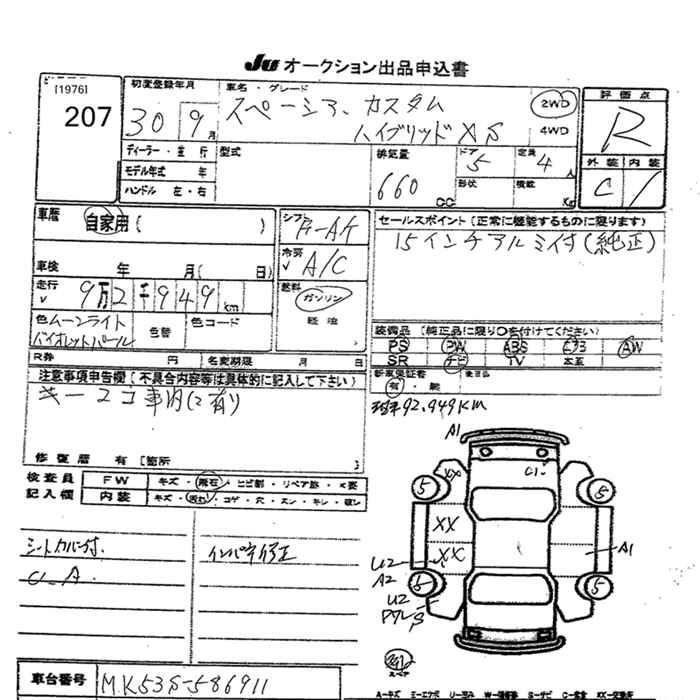 Ju オークション出品申込書
[1976]
207
初度登録年月
30 9月
車名・グレード
スペーシア カスタム
ハイブリッドXS
2WD
4WD
評価点
R
ディーラー・並行
モデル年式 年
ハンドル 左・右
型式
排気量
660 CC
ドア
5
形状
定員
4人
積載
Kg
外装 内装
C
車歴
自家用( )
車検 年 月( 日)
シフト
冷房
A/C
走行
9万2千949km
燃料
ガソリン
軽油
色 ムーンライト
バイオレットパール
色替
色コード
セールスポイント(正常に機能するものに限ります)
15インチアルミ付(純正)
装備品 [純正品に限り○を付けてください]
PS PW ABS エアB AW
SR ナビ TV 本革
新車保証書
有・無
R券 円 名変期限 月 日
注意事項申告欄(不具合内容等は具体的に記入して下さい)
キー2コ車内(2有)
92,949KM
修復歴 有 [箇所 ]
検査員
記入欄
FW
キズ・飛石・ヒビ割・リペア跡・X要
内装
キズ・汚れ・コゲ・穴・スレ・キレ・破レ
シートカバー付.
インパネ修正
車台番号
MK53S-586911
A1
XX
C1
5
5
XX
XX
U2
A2
A1
5
U2